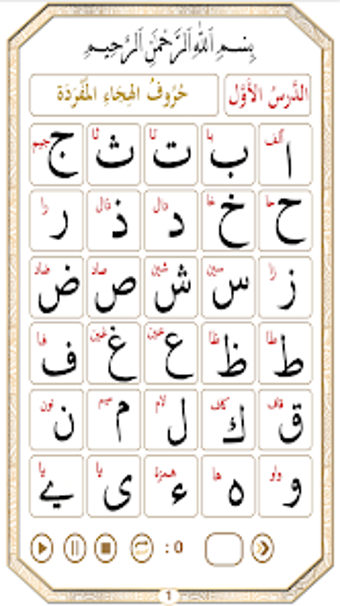 بِسْمِ اللَّهِ الرَّحْمَٰنِ الرَّحِيمِ
الدَّرسُ الأَوَّل حُرُوفُ الهِجَاءِ المُفْرَدَة
ا ألف ب با ت تا ث ثا ج جيم
ح حا خ خا د دال ذ ذال ر را
ز زا س سين ش شين ص صاد ض ضاد
ط طا ظ ظا ع عين غ غين ف فا
ق قاف ك كاف ل لام م ميم ن نون
و واو ه ها ء همزة ى يا ے يا
0 :
1